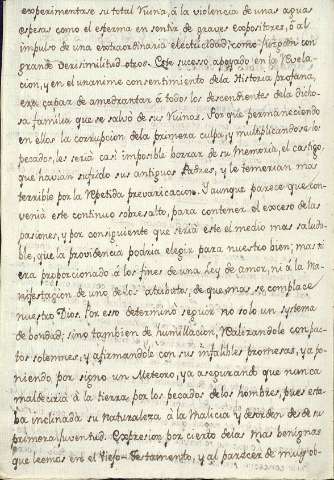 experimentase su total Ruina, â la violencia de unas aguas
espesas como el esperma en sentir de graves expositores, ô al
impulso de una extraordinaria electricidad, como juzgan con
grande verisimilitud otros. Este sucesso apoyado en la Revela-
cion, y en el unanime consentimiento de la Historia profana,
era capaz de amedrantar â todos los descendientes de la dicho-
sa familia que se salvó de sus Ruinas. Por que permaneciendo
en ellos la corrupcion de la primera culpa, y multiplicandose los
pecados, les seria casi imposible borrar de su memoria, el castigo,
que havian sufrido sus antiguos Padres, y le temerian mas
terrible por la Repetida prevaricacion. Y aunque parece que con-
venia este continuo sobresalto, para contener el exceso de las
pasiones, y por consiguiente que seria este el medio mas saluda-
ble, que la providencia podria elegir para nuestro bien; mas ni
era proporcionado â los fines de una Ley de amor, ni â la Ma-
nifestacion de uno de los atributos, de que mas se complace
nuestro Dios. Por esso determinó seguir no solo un systema
de bondad; sino tambien de humillacion, Realizandole con pac-
tos solemnes, y afirmandole con sus infalibles promesas, ya po-
niendo por signo un Meteoro, ya asegurando que nunca
maldeciria â la tierra por los pecados de los hombres, pues esta-
ba inclinada su naturaleza â la Malicia y desorden desde su
primera Juventud. Expresion por cierto de las mas benignas
que leemos en el Viejo Testamento, y al parecer de muy ob-